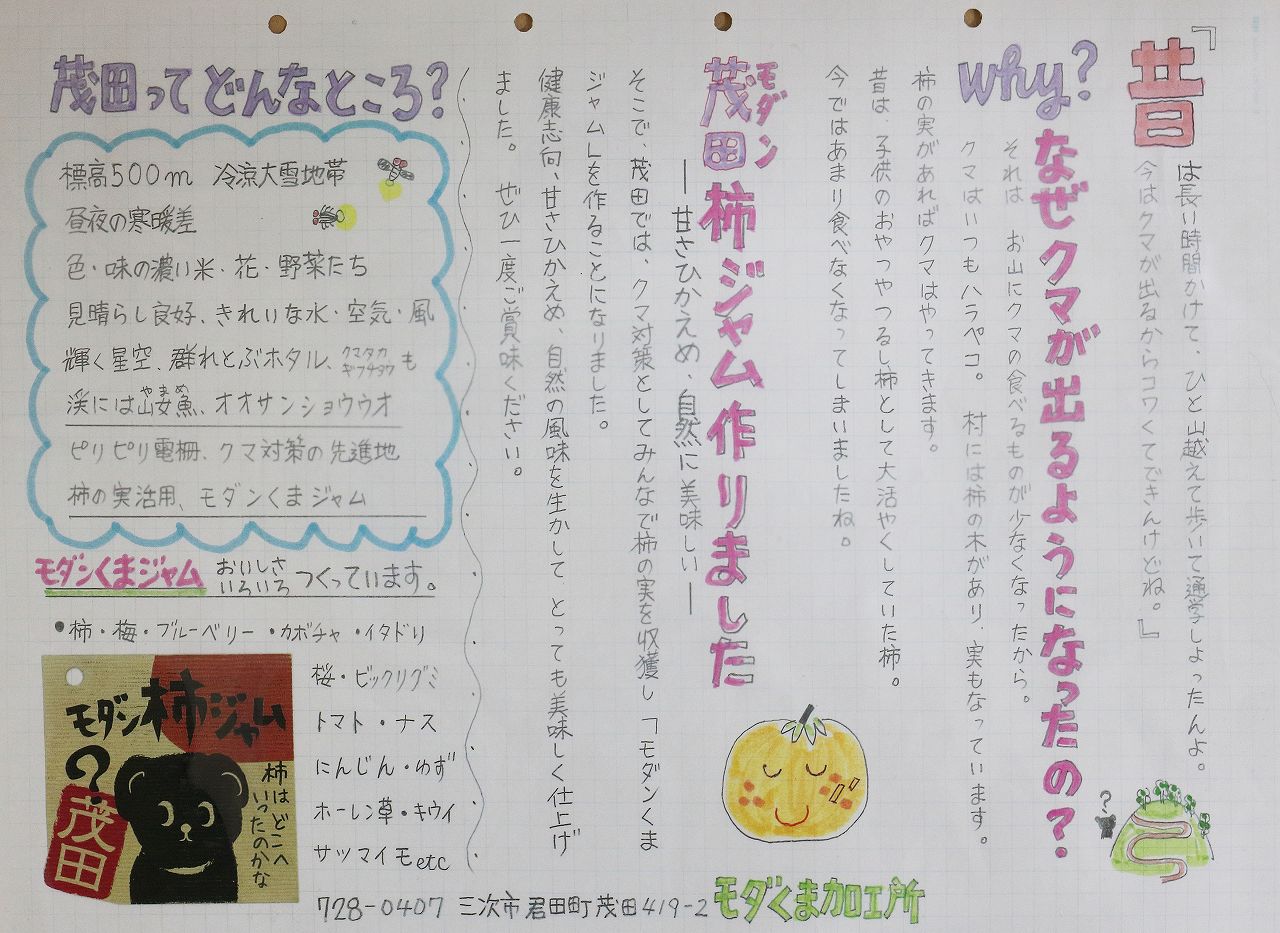 『昔
は長い時間かけて、ひと山越えて歩いて通学しよったんよ。
今はクマが出るからコワくてできんけどね。』
why?
なぜクマが出るようになったの?
それは お山にクマの食べるものが少なくなったから。
クマはいつもハラペコ。 村には柿の木があり、実もなっています。
柿の実があればクマはやってきます。
昔は、子供のおやつやつるし柿として大活やくしていた柿。
今ではあまり食べなくなってしまいましたね。
?
モダン
茂田柿ジャム作りました
―甘さひかえめ、自然に美味しい―
そこで、茂田では、クマ対策としてみんなで柿の実を収獲し「モダンくま
ジャム」を作ることになりました。
健康志向、甘さひかえめ、自然の風味を生かして、とっても美味しく仕上げ
ました。 ぜひ一度ご賞味ください。
茂田ってどんなところ?
標高500m 冷涼大雪地帯
昼夜の寒暖差
色・味の濃い米・花・野菜たち
見晴らし良好、きれいな水・空気・風
輝く星空、群れとぶホタル、クマタカ ギフチョウも
渓には山女魚、オオサンショウウオ
やまめ
ピリピリ電柵、クマ対策の先進地
柿の実活用、モダンくまジャム
モダンくまジャム おいしさ いろいろ つくっています。
•柿・梅・ブルーベリー・カボチャ・イタドリ
桜・ビックリグミ
トマト・ナス
にんじん・ゆず
ホーレン草・キウイ
サツマイモetc
モダン柿ジャム
?
茂田
柿はどこへ
いったのかな
728-0407 三次市君田町茂田419-2 モダくま加工所